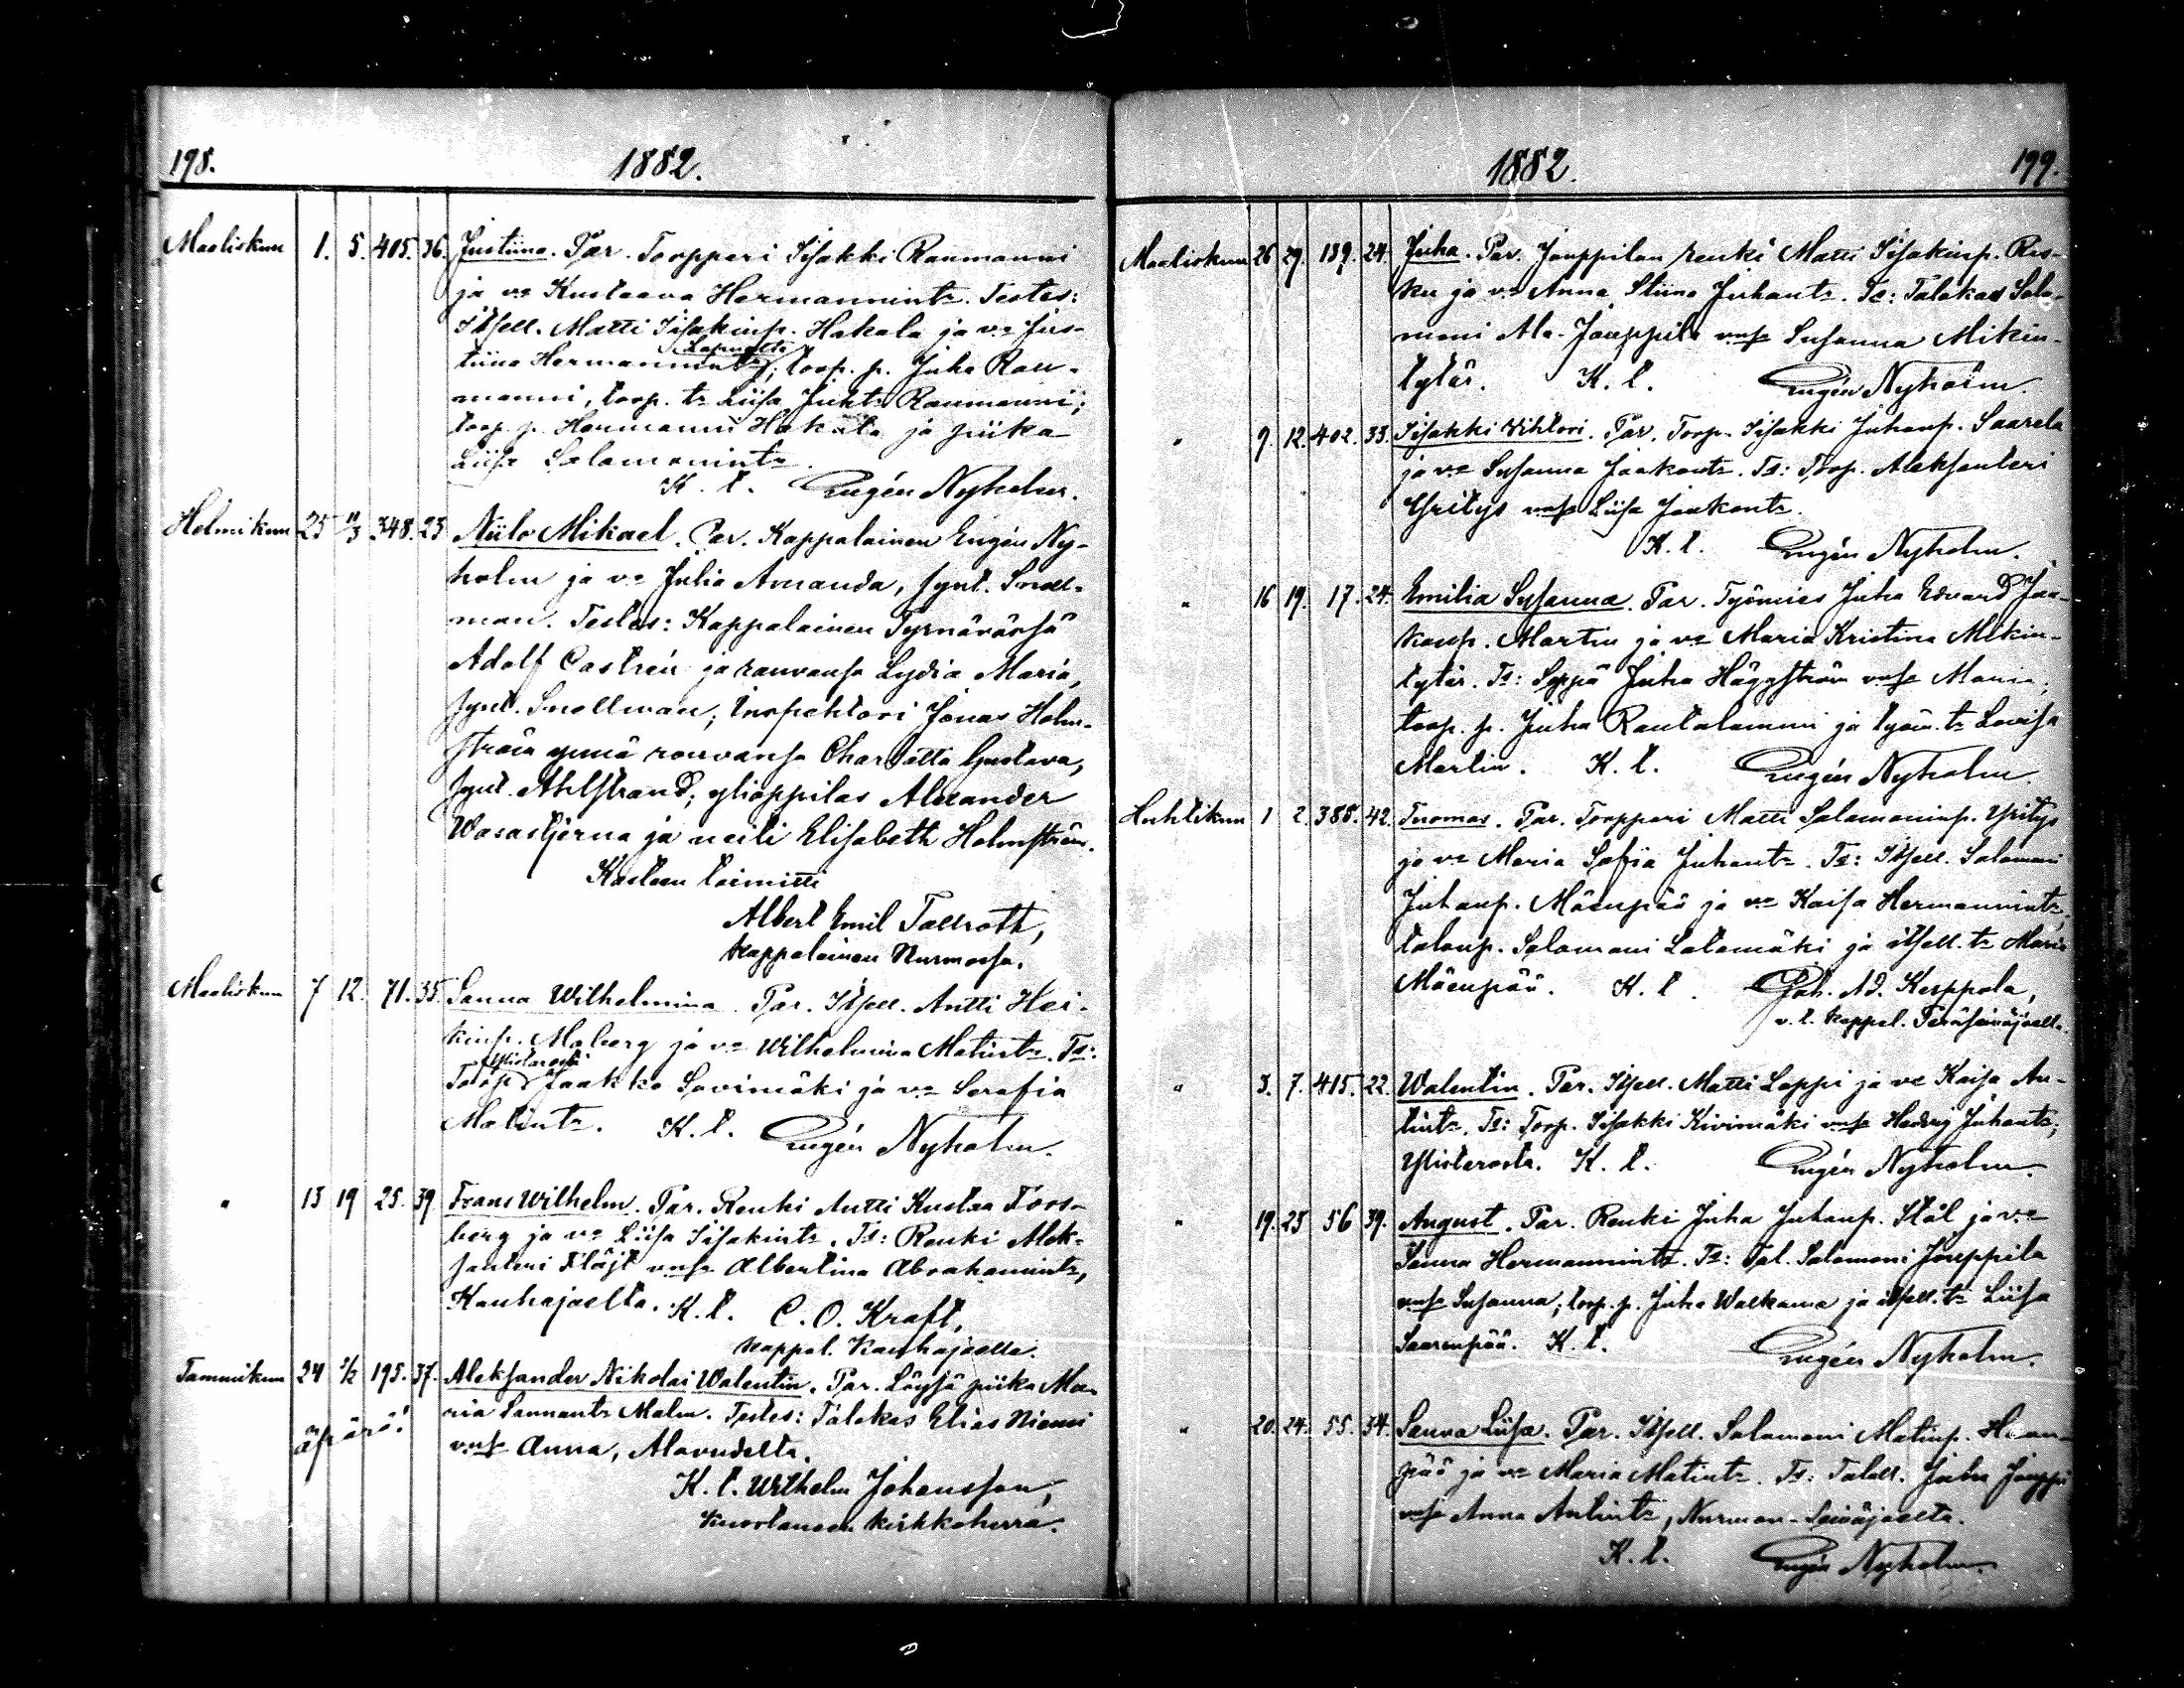 198.
1882.
Maaliskuu 1. 5. 405. 36. Justiina. Par. Toopperi Iisakki Raumanni
ja vo Kustaava Hermannintr. Testes:
Itsell. Matti Iisakinp. Hakala ja vo Jus-
Lapualta
tiina Hermannintr; toop. p. Juha Rau-
manni, toop. tr Liisa Juhtr Raumanni;
toop. p. Hermanni Hakala ja piika
Liisa Salamonintr.
K. t. Eugén Nyholm.
Helmikuu 25 11/3 348. 23 Niilo Mikael. Par. Kappalainen Eugén Ny-
holm ja vo Julia Amanda, synt. Snell-
man. Testes: Kappalainen Tyrnävässä
Adolf Castrén ja rouvansa Lydia Maria,
synt. Snellman; Inspehtori Jonas Holm-
ström ynnä rouvansa Charlotta Gustava,
synt. Ahlstrand; ylioppilas Alexander
Wasastjerna ja neiti Elisabeth Holmström.
Kasteen toimitti
Albert Emil Tallroth,
kappalainen Nurmossa.
Maaliskuu 7 12. 71. 35. Sanna Wilhelmina. Par. Itsell. Antti Hei-
kinp. Moberg ja vo Wilhelmina Matintr. Ts:
Ylistarosta
Toop. Jaakko Savimäki ja vo Serafia
Matintr. K. t. Eugén Nyholm.
" 13 19 25. 39 Frans Wilhelm. Par. Renki Antti Kustaa Fors-
berg ja vo Liisa Iisakintr. Ts: Renki Alek-
santeri Flöjt vnsa Albertina Abrahamintr,
Kauhajoelta. K. t. C. O. Kraft,
kappal. Kauhajoella.
Tammikuu 24 5/2 195. 37. Aleksander Nikolai Walentin. Par. Löysä piika Ma-
ria Sannantr Malm. Testes: Talokas Elias Niemi
äpärä! vnsa Anna, Alavudelta.
K. t. Wilhelm Johansson,
Kuortaneen kirkkoherra.
1882.
199.
Maaliskuu 26 29. 139. 24. Juha. Par. Jouppilan renki Matti Iisakinp. Rus-
ku ja vo Anna Stiina Juhantr. Ts: Talokas Salo-
moni Ala-Jouppila vnsa Susanna Mikin-
tytär. K. t. Eugén Nyholm.
" 9. 12. 402. 33. Iisakki Wihtori. Par. Toop. Iisakki Juhanp. Saarela
ja vo Susanna Jaakontr. Ts: Toop. Aleksanteri
Yritys vnsa Liisa Jaakontr.
K. t. Eugén Nyholm.
" 16 19. 17. 24. Emilia Susanna. Par. Työmies Juha Edvard Jaa-
konp. Martin ja vo Maria Kristina Mikin-
tytär. Ts: Seppä Juha Häggström vnsa Maria;
toop. p. Juha Rautalammi ja työm. tr Lovisa
Martin. K. t. Eugén Nyholm.
Huhtikuu 1 2. 388. 42. Tuomas. Par. Toopperi Matti Salamoninp. Yritys
ja vo Maria Sofia Juhantr. Ts: Itsell. Salamoni
Juhanp. Mäenpää ja vo Kaisa Hermannintr,
talonp. Salamoni Latomäki ja itsell. tr Maria
Mäenpää. K. t. Joh. Ad. Keppola,
v. t. kappal. Peräseinäjoella.
" 3. 7. 415. 22. Walentin. Par. Itsell. Matti Loppi ja vo Kaisa An-
tintr. Ts: Toop. Iisakki Kivimäki vnsa Hedvig Juhantr;
Ylistarosta. K. t. Eugén Nyholm.
" 19. 23 56 39. August. Par. Renki Juha Juhanp. Stål ja vo
Sanna Hermannintr. Ts: Tal. Salomoni Jouppila
vnsa Susanna; toop. p. Juha Walkama ja itsell. tr Liisa
Saarenpää. K. t. Eugén Nyholm.
" 20. 24. 55. 34. Sanna Liisa. Par. Itsell. Salamoni Matinp. Haan-
pää ja vo Maria Matintr. Ts: Taloll. Juha Jouppi
vnsa Anna Antintr, Nurmon-Seinäjoelta.
K. t. Eugén Nyholm.